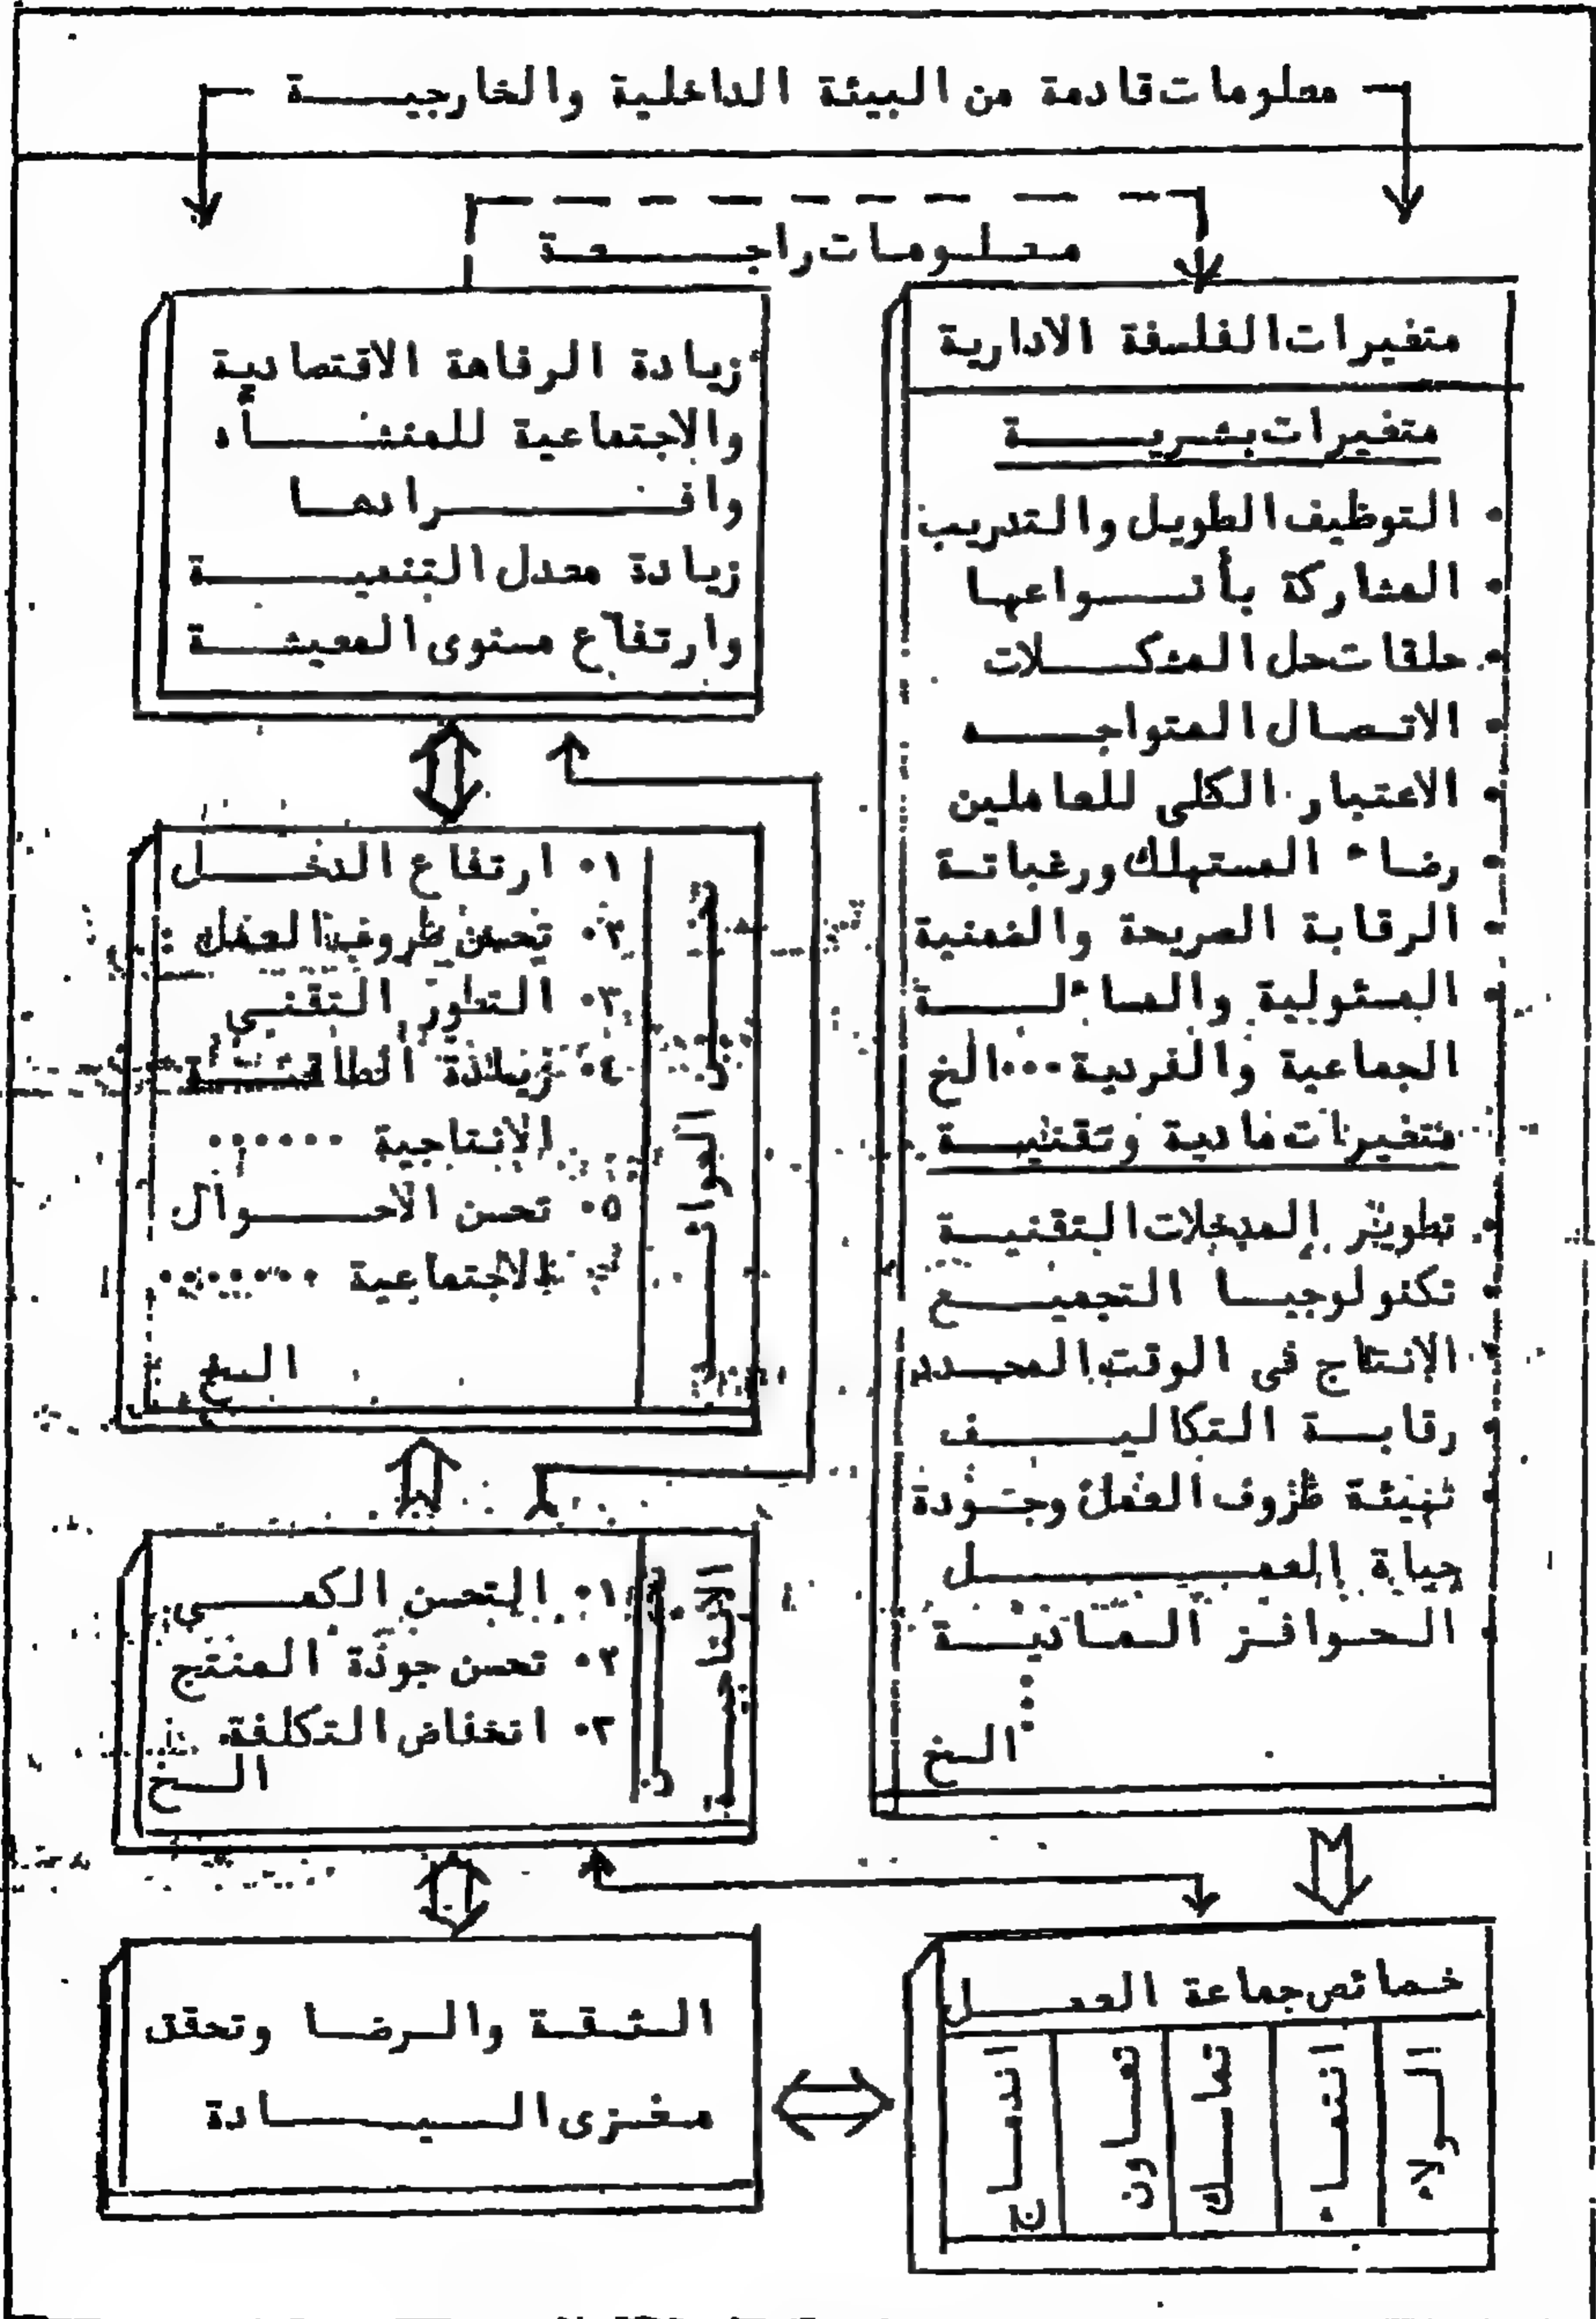 معلومات قادمة من البيئة الداخلية والخارجية
معلومات راجعة
متغيرات الفلسفة الادارية
متغيرات بشرية
• التوظيف الطويل والتدريب
• المشاركة بأنواعها
• حلقات حل المشكلات
• الاتصال المتواجه
• الاعتبار الكلى للعاملين
• رضاء المستهلك ورغباتة
• الرقابة الصريحة والضمنية
• المسئولية والمساءلة
الجماعية والفردية ...الخ
متغيرات مادية وتقنية
• تطوير المدخلات التقنية
• تكنولوجيا التجميع
• الانتاج فى الوقت المحدد
• رقابة التكاليف
• تهيئة ظروف العمل وجودة
حياة العمل
• الحوافز المادية
الخ
زيادة الرفاهة الاقتصادية
والاجتماعية للمنشأه
وافرادها
زيادة معدل التنمية
وارتفاع مستوى المعيشة
العوائد
١٠ ارتفاع الدخل
٢٠ تحسن ظروف العمل
٣٠ التطور التقنى
٤٠ زيادة الطاقة
الانتاجية ......
٥٠ تحسن الاحوال
الاجتماعية .......
الخ
الانتاجية
١٠ التحسن الكمى
٢٠ تحسن جودة المنتج
٣٠ انخفاض التكلفة
الخ
خصائص جماعة العمل
الولاء
انتماء
تماسك
تعاون
اندماج
الثقة والرضا وتحقق
مغزى السيادة